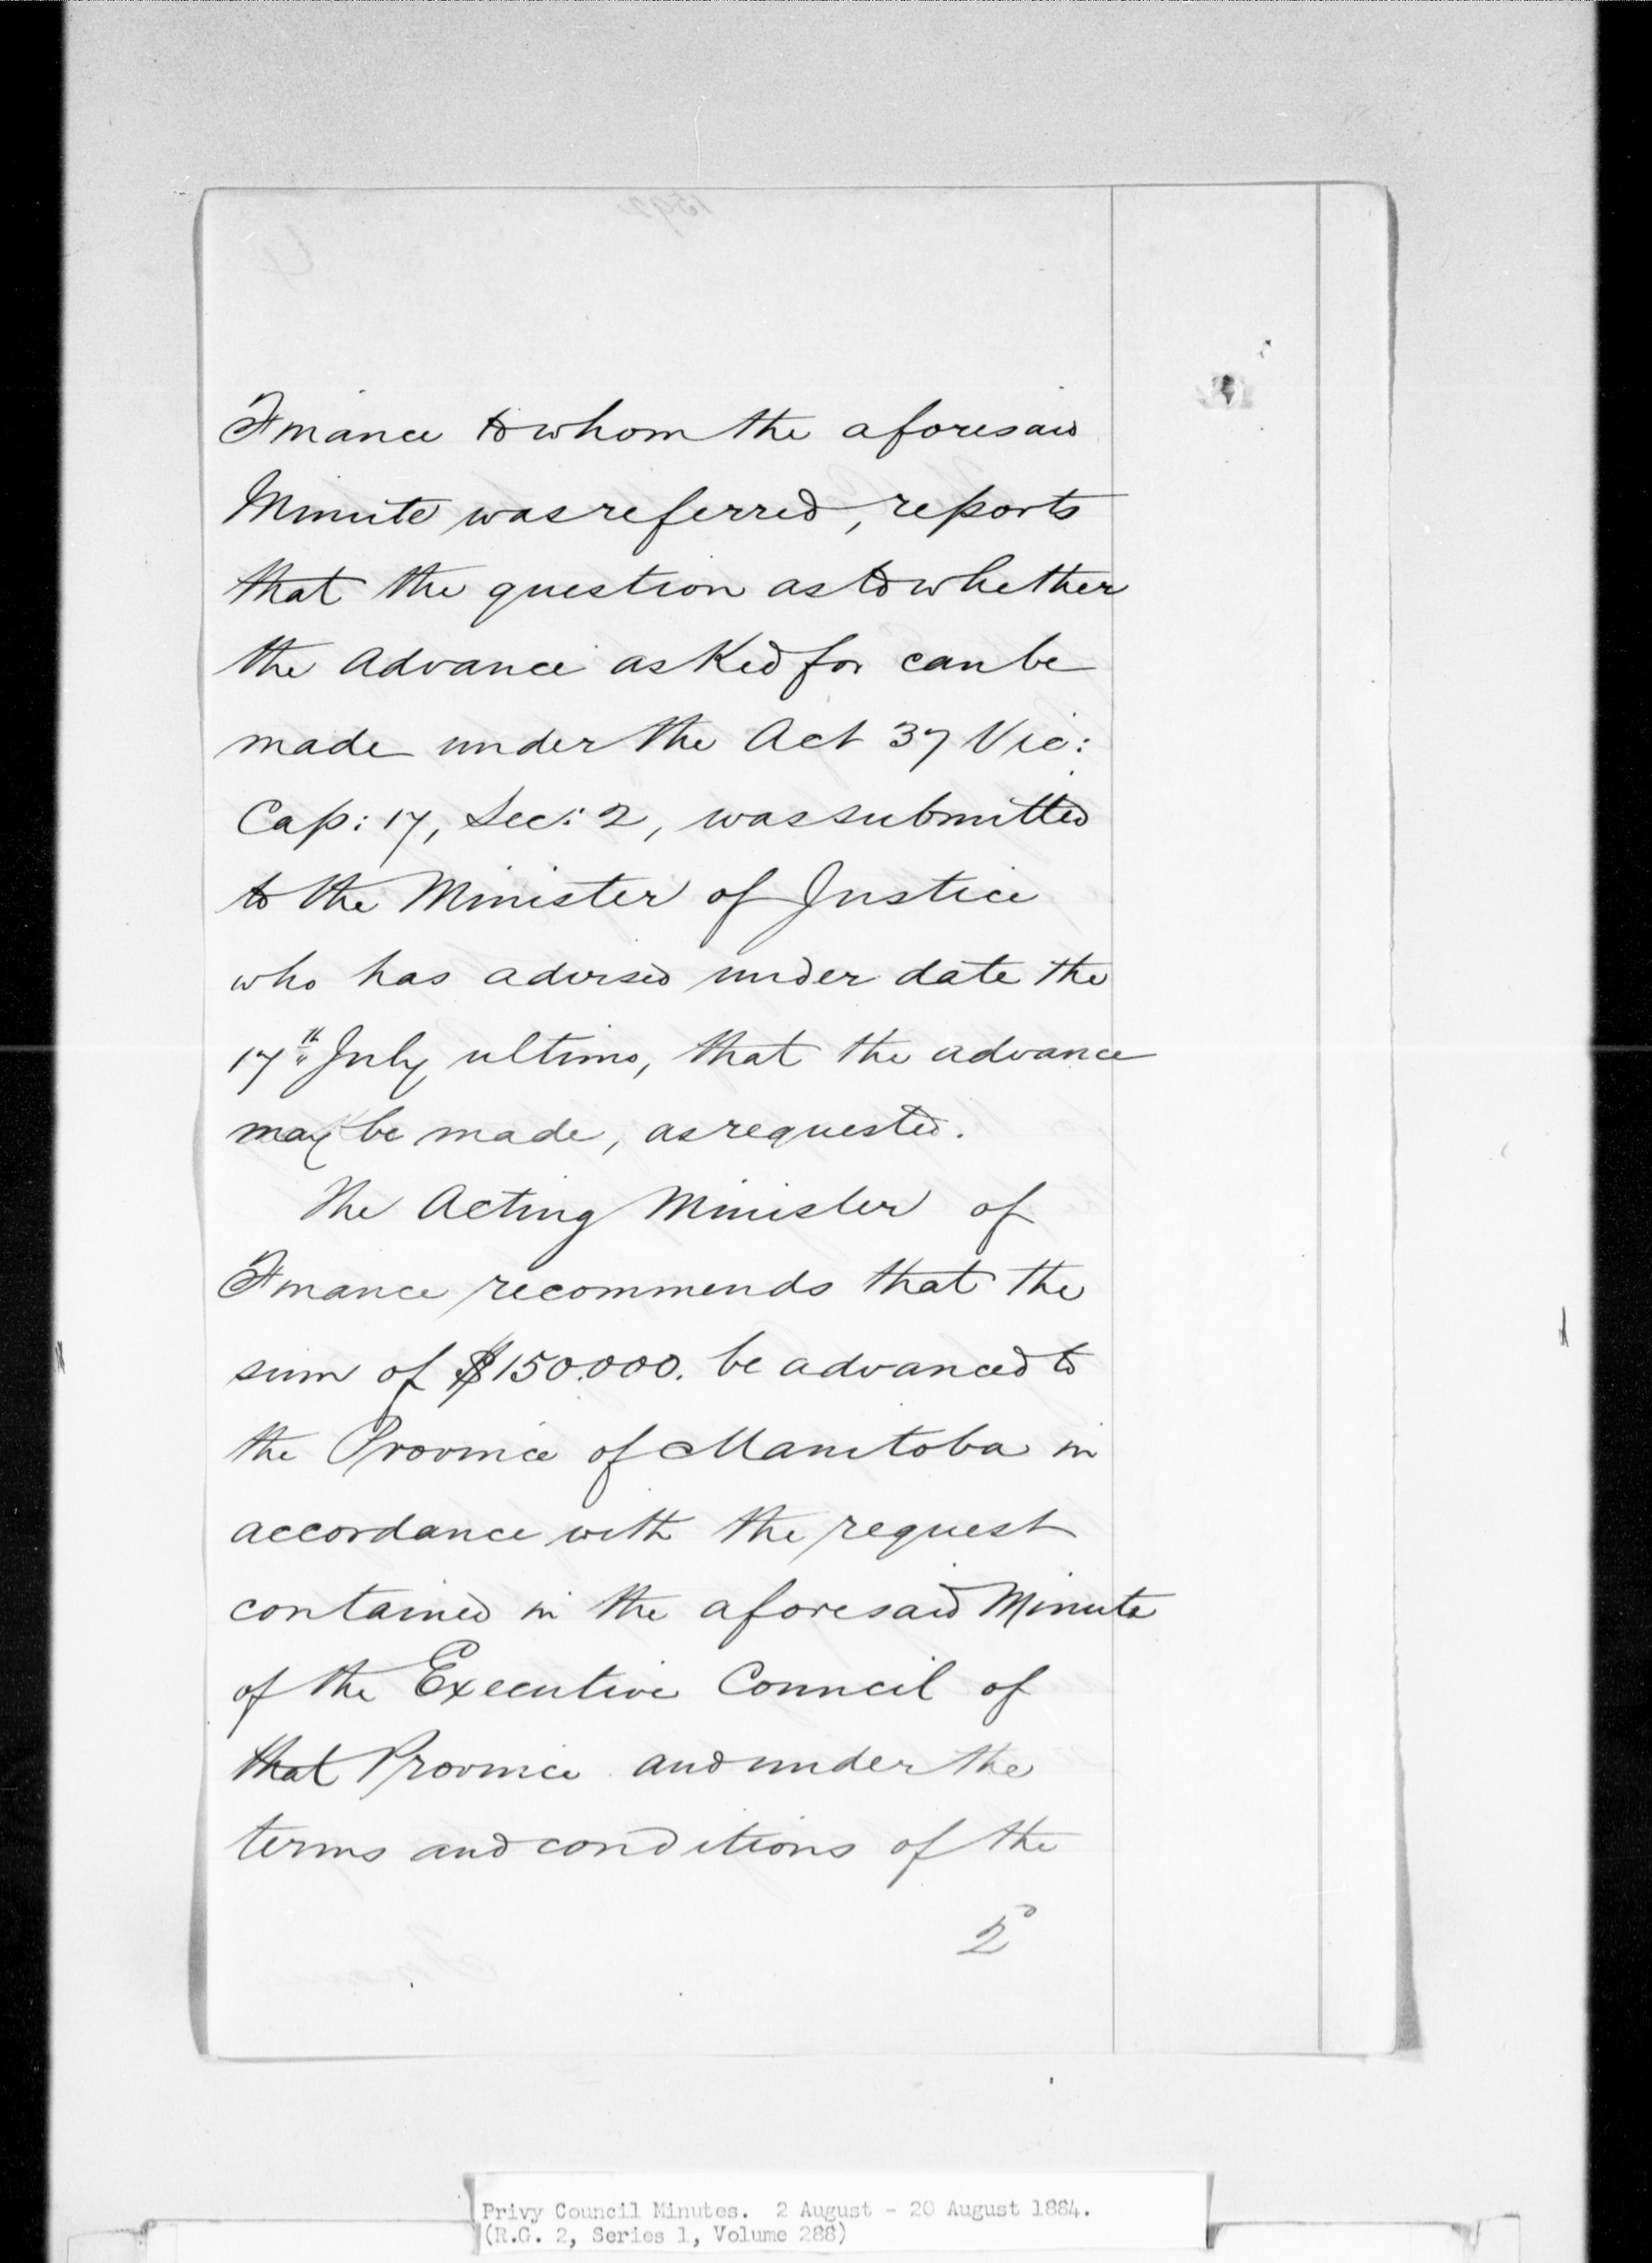 Finance to whom the aforesaid
Minute was referred, reports
that the question as to whether
the Advance asked for can be
made under the Act 37 Vic:
Cap: 17, Sec: 2, was submitted
to the Minister of Justice
who has advised under date the
17th July ultimo, that the advance
may be made, as requested.
The Acting Minister of
Finance recommends that the
sum of $150.000. be advanced to
the Province of Manitoba in
accordance with the request
contained in the aforesaid Minute
of the Executive Council of
that Province and under the
terms and conditions of the
Privy Council Minutes. 2 August - 20 August 1884.
(R.G. 2, Series 1, Volume 288)